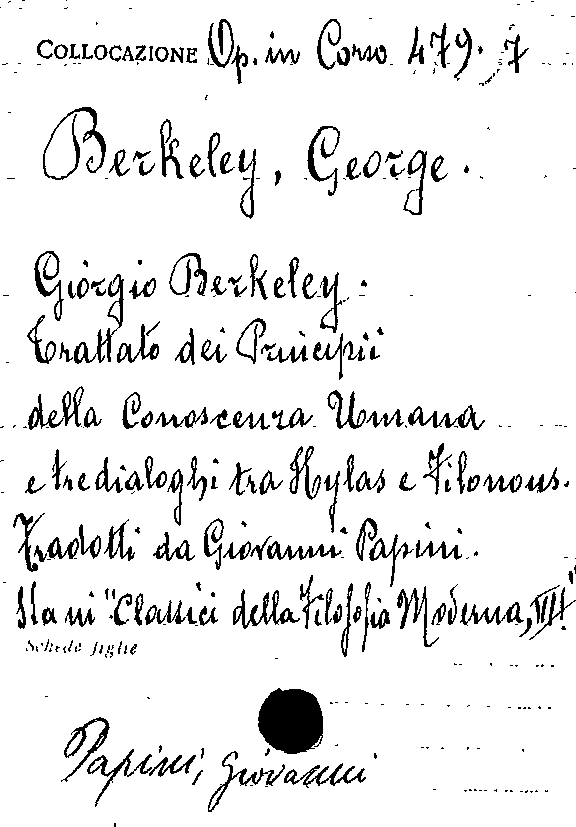 COLLOCAZIONE Op. in Corso 479. 7
Berkeley, George.
Giorgio Berkeley.
Trattato dei Principii
della Conoscenza Umana
e tre dialoghi tra Hylas e Filonous.
Tradotti da Giovanni Papini.
Sta ni "Classici della Filosofia Moderna, VII"
Schede figlie
Papini, Giovanni